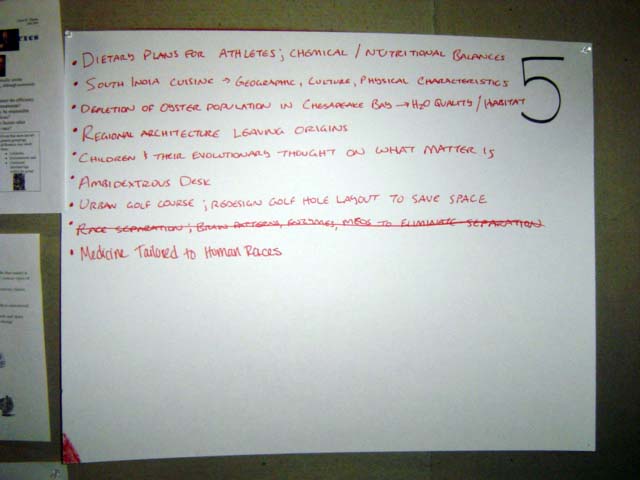 • Dietary Plans for Athletes; Chemical / Nutritional Balances
• South India Cuisine → Geographic, Culture, Physical Characteristics
5
• Depletion of Oyster Population in Chesapeake Bay → H2O Quality / Habitat
• Regional Architecture Leaving Origins
• Children & Their Evolutionary Thought on What Matter is
• Ambidextrous Desk
• Urban Golf Course; Redesign Golf Hole Layout to Save Space
• Race Separation; Brain Patterns, Enzymes, Meds to Eliminate Separation
• Medicine Tailored to Human Races